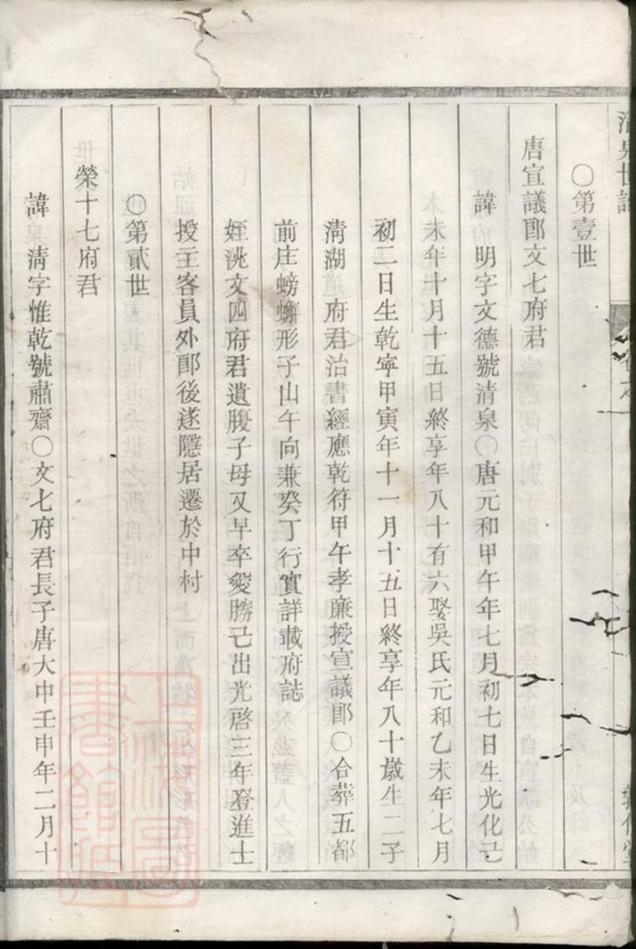 清泉世譜
〇第壹世
唐宣議郎文七府君
諱　明字文德號清泉〇唐元和甲午年七月初七日生光化己
未年十月十五日終享年八十有六娶吳氏元和乙未年七月
初二日生乾寧甲寅年十一月十五日終享年八十歲生二子
清湖　府君治書經應乾符甲午孝廉授宣議郎〇合葬五都
前庄螃蠏形子山午向兼癸丁行實詳載府誌
姪洮文四府君遺腹子母又早卒愛勝己出光啓三年登進士
授主客員外郎後遂隱居遷於中村
〇第貳世
榮十七府君
諱　清字惟乾號肅齋〇文七府君長子唐大中壬申年二月十